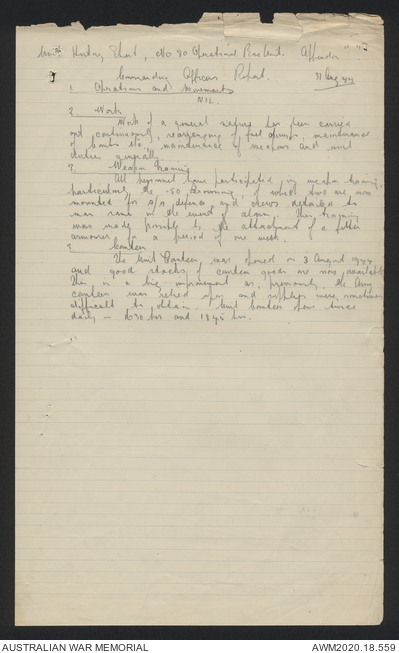 Unit History Sheet, No 80 Operational Base Unit. Appendix "  "
Commanding Officers Report. 31 Aug 44
1. Operations and Movements
NIL.
2. Work
Work of a general nature has been carried
out continuously, rearranging of fuel dumps, maintenance
of bombs etc. maintenance of weapons and unit
duties generally.
3. Weapon Training
All personnel have participated in weapon training,
particularly the .50 Browning, of which two are now
mounted for a/a defence and crews detailed to
man same in the event of alarm. This training
was made possible by the attachment of a fitter
armourer for a period of one week.
Canteen
The Unit Canteen was opened on 3 August 1944
and good stocks of canteen goods are now available
This is a big improvement as, previously, the Army
canteen was relied upon and supplies were sometimes
difficult to obtain. Unit canteen opens twice
daily — 0630 hrs and 1845 hrs.
AUSTRALIAN WAR MEMORIAL
AWM2020.18.559